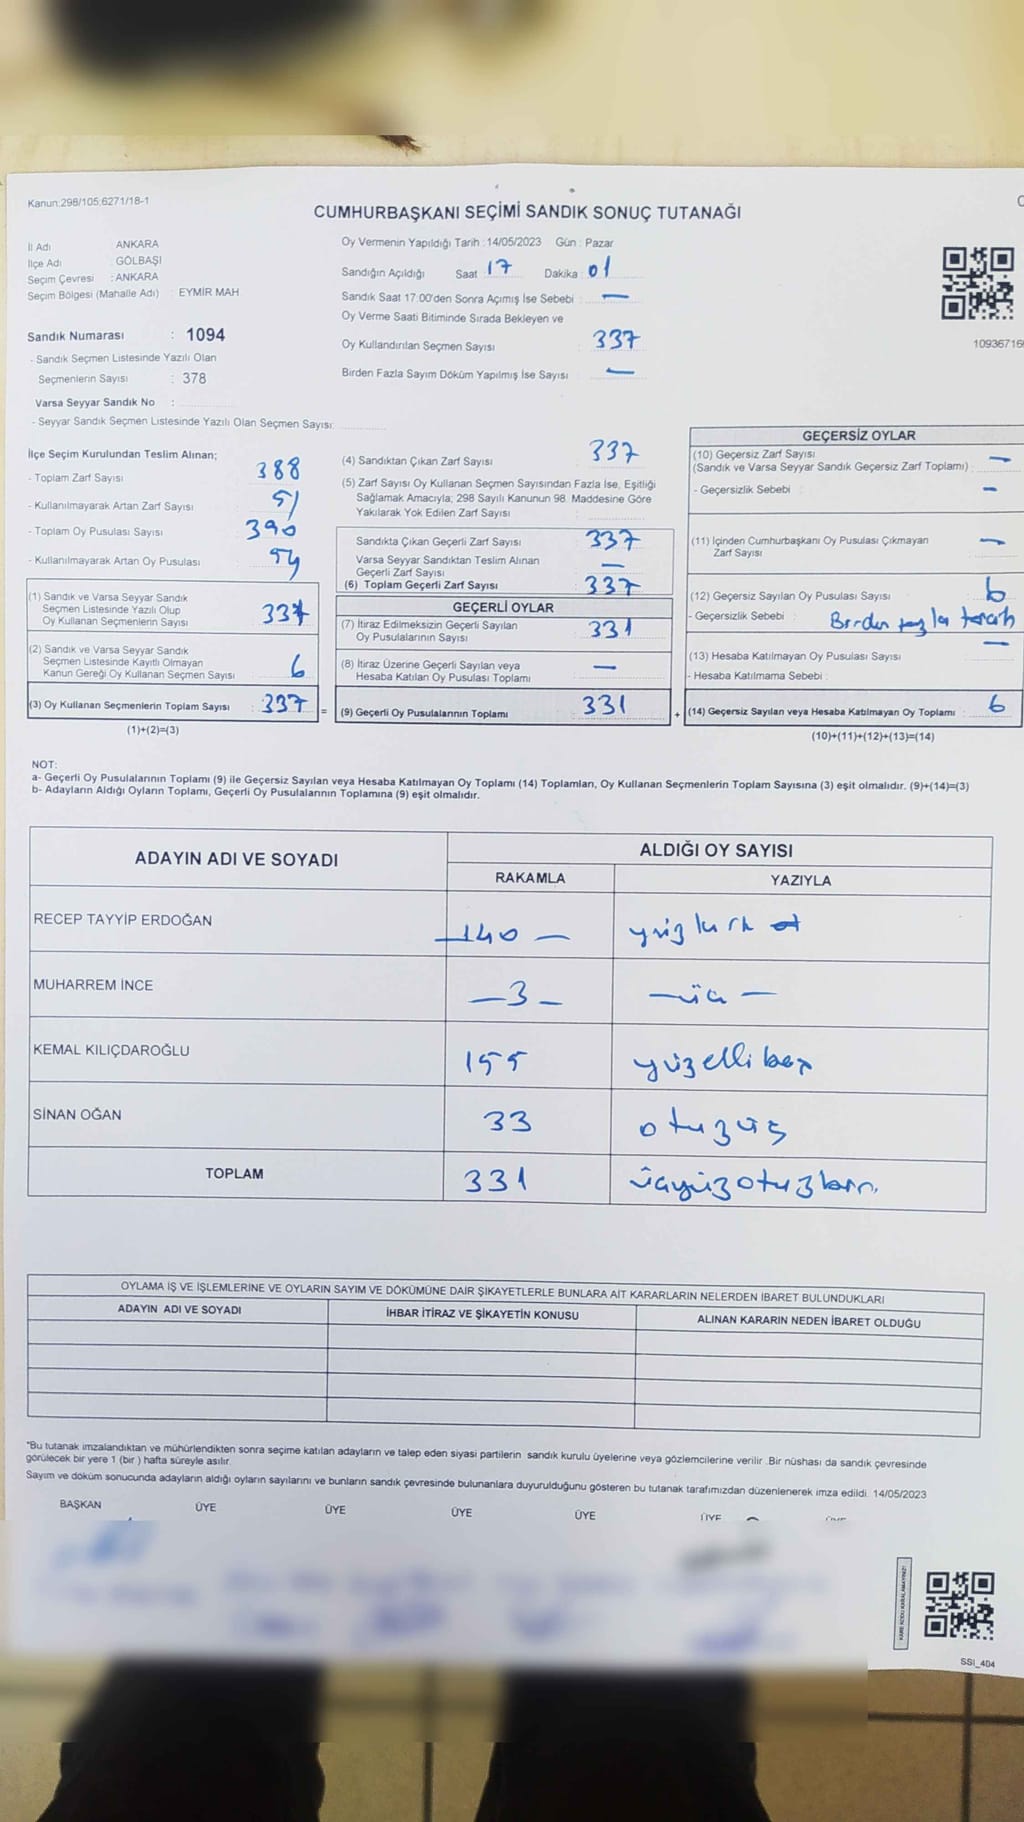 Kanun:298/105,6271/18-1
CUMHURBAŞKANI SEÇİMİ SANDIK SONUÇ TUTANAĞI
İl Adı ANKARA
İlçe Adı : GÖLBAŞI
Seçim Çevresi : ANKARA
Seçim Bölgesi (Mahalle Adı) : EYMİR MAH
Sandık Numarası : 1094
- Sandık Seçmen Listesinde Yazılı Olan
Seçmenlerin Sayısı : 378
Varsa Seyyar Sandık No :
- Seyyar Sandık Seçmen Listesinde Yazılı Olan Seçmen Sayısı:
Oy Vermenin Yapıldığı Tarih : 14/05/2023 Gün : Pazar
Sandığın Açıldığı Saat 17 Dakika : 01
Sandık Saat 17:00'den Sonra Açımış İse Sebebi : —
Oy Verme Saati Bitiminde Sırada Bekleyen ve
Oy Kullandırılan Seçmen Sayısı : 337
Birden Fazla Sayım Döküm Yapılmış İse Sayısı : —
10936716
İlçe Seçim Kurulundan Teslim Alınan;
- Toplam Zarf Sayısı 388
- Kullanılmayarak Artan Zarf Sayısı 51
- Toplam Oy Pusulası Sayısı 390
- Kullanılmayarak Artan Oy Pusulası 54
(1) Sandık ve Varsa Seyyar Sandık
Seçmen Listesinde Yazılı Olup
Oy Kullanan Seçmenlerin Sayısı
(2) Sandık ve Varsa Seyyar Sandık
Seçmen Listesinde Kayıtlı Olmayan
Kanun Gereği Oy Kullanan Seçmen Sayısı : 6
(3) Oy Kullanan Seçmenlerin Toplam Sayısı : 337 =
(1)+(2)=(3)
(4) Sandıktan Çıkan Zarf Sayısı 337
(5) Zarf Sayısı Oy Kullanan Seçmen Sayısından Fazla İse, Eşitliği
Sağlamak Amacıyla; 298 Sayılı Kanunun 98. Maddesine Göre
Yakılarak Yok Edilen Zarf Sayısı
Sandıkta Çıkan Geçerli Zarf Sayısı 337
Varsa Seyyar Sandıktan Teslim Alınan
Geçerli Zarf Sayısı —
(6) Toplam Geçerli Zarf Sayısı 337
GEÇERLİ OYLAR
(7) İtiraz Edilmeksizin Geçerli Sayılan
Oy Pusulalarının Sayısı 331
(8) İtiraz Üzerine Geçerli Sayılan veya
Hesaba Katılan Oy Pusulası Toplamı —
(9) Geçerli Oy Pusulalarının Toplamı 331 +
GEÇERSİZ OYLAR
(10) Geçersiz Zarf Sayısı
(Sandık ve Varsa Seyyar Sandık Geçersiz Zarf Toplamı) : —
- Geçersizlik Sebebi : —
(11) İçinden Cumhurbaşkanı Oy Pusulası Çıkmayan
Zarf Sayısı —
(12) Geçersiz Sayılan Oy Pusulası Sayısı : 6
- Geçersizlik Sebebi : Birden fazla tercih
(13) Hesaba Katılmayan Oy Pusulası Sayısı : —
- Hesaba Katılmama Sebebi :
(14) Geçersiz Sayılan veya Hesaba Katılmayan Oy Toplamı : 6
(10)+(11)+(12)+(13)=(14)
NOT:
a- Geçerli Oy Pusulalarının Toplamı (9) ile Geçersiz Sayılan veya Hesaba Katılmayan Oy Toplamı (14) Toplamları, Oy Kullanan Seçmenlerin Toplam Sayısına (3) eşit olmalıdır. (9)+(14)=(3)
b- Adayların Aldığı Oyların Toplamı, Geçerli Oy Pusulalarının Toplamına (9) eşit olmalıdır.
ADAYIN ADI VE SOYADI ALDIĞI OY SAYISI
RAKAMLA YAZIYLA
RECEP TAYYİP ERDOĞAN — 140 — yüz kırk
MUHARREM İNCE — 3 — — üç —
KEMAL KILIÇDAROĞLU 155 yüzellibeş
SİNAN OĞAN 33 otuzüç
TOPLAM 331 üçyüzotuzbir.
OYLAMA İŞ VE İŞLEMLERİNE VE OYLARIN SAYIM VE DÖKÜMÜNE DAİR ŞİKAYETLERLE BUNLARA AİT KARARLARIN NELERDEN İBARET BULUNDUKLARI
ADAYIN ADI VE SOYADI İHBAR İTİRAZ VE ŞİKAYETİN KONUSU ALINAN KARARIN NEDEN İBARET OLDUĞU
*Bu tutanak imzalandıktan ve mühürlendikten sonra seçime katılan adayların ve talep eden siyasi partilerin sandık kurulu üyelerine veya gözlemcilerine verilir. Bir nüshası da sandık çevresinde
görülecek bir yere 1 (bir ) hafta süreyle asılır.
Sayım ve döküm sonucunda adayların aldığı oyların sayılarını ve bunların sandık çevresinde bulunanlara duyurulduğunu gösteren bu tutanak tarafımızdan düzenlenerek imza edildi. 14/05/2023
BAŞKAN ÜYE ÜYE ÜYE ÜYE ÜYE
KARE KODU KARALAMAYINIZ!
SSI_404